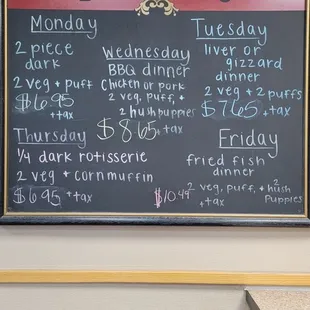 Monday
2 piece
dark
2 veg + puff
$6.95
+tax
Wednesday
BBQ dinner
Chicken or pork
2 veg, puff, +
2 hushpuppies
$8.65 +tax
Tuesday
liver or
gizzard
dinner
2 veg + 2 puffs
$7.65 +tax
Thursday
1/4 dark rotisserie
2 veg + corn muffin
$6.95 +tax
Friday
fried fish
dinner
$10.44 2 veg, puff, + 2 hush
+tax puppies